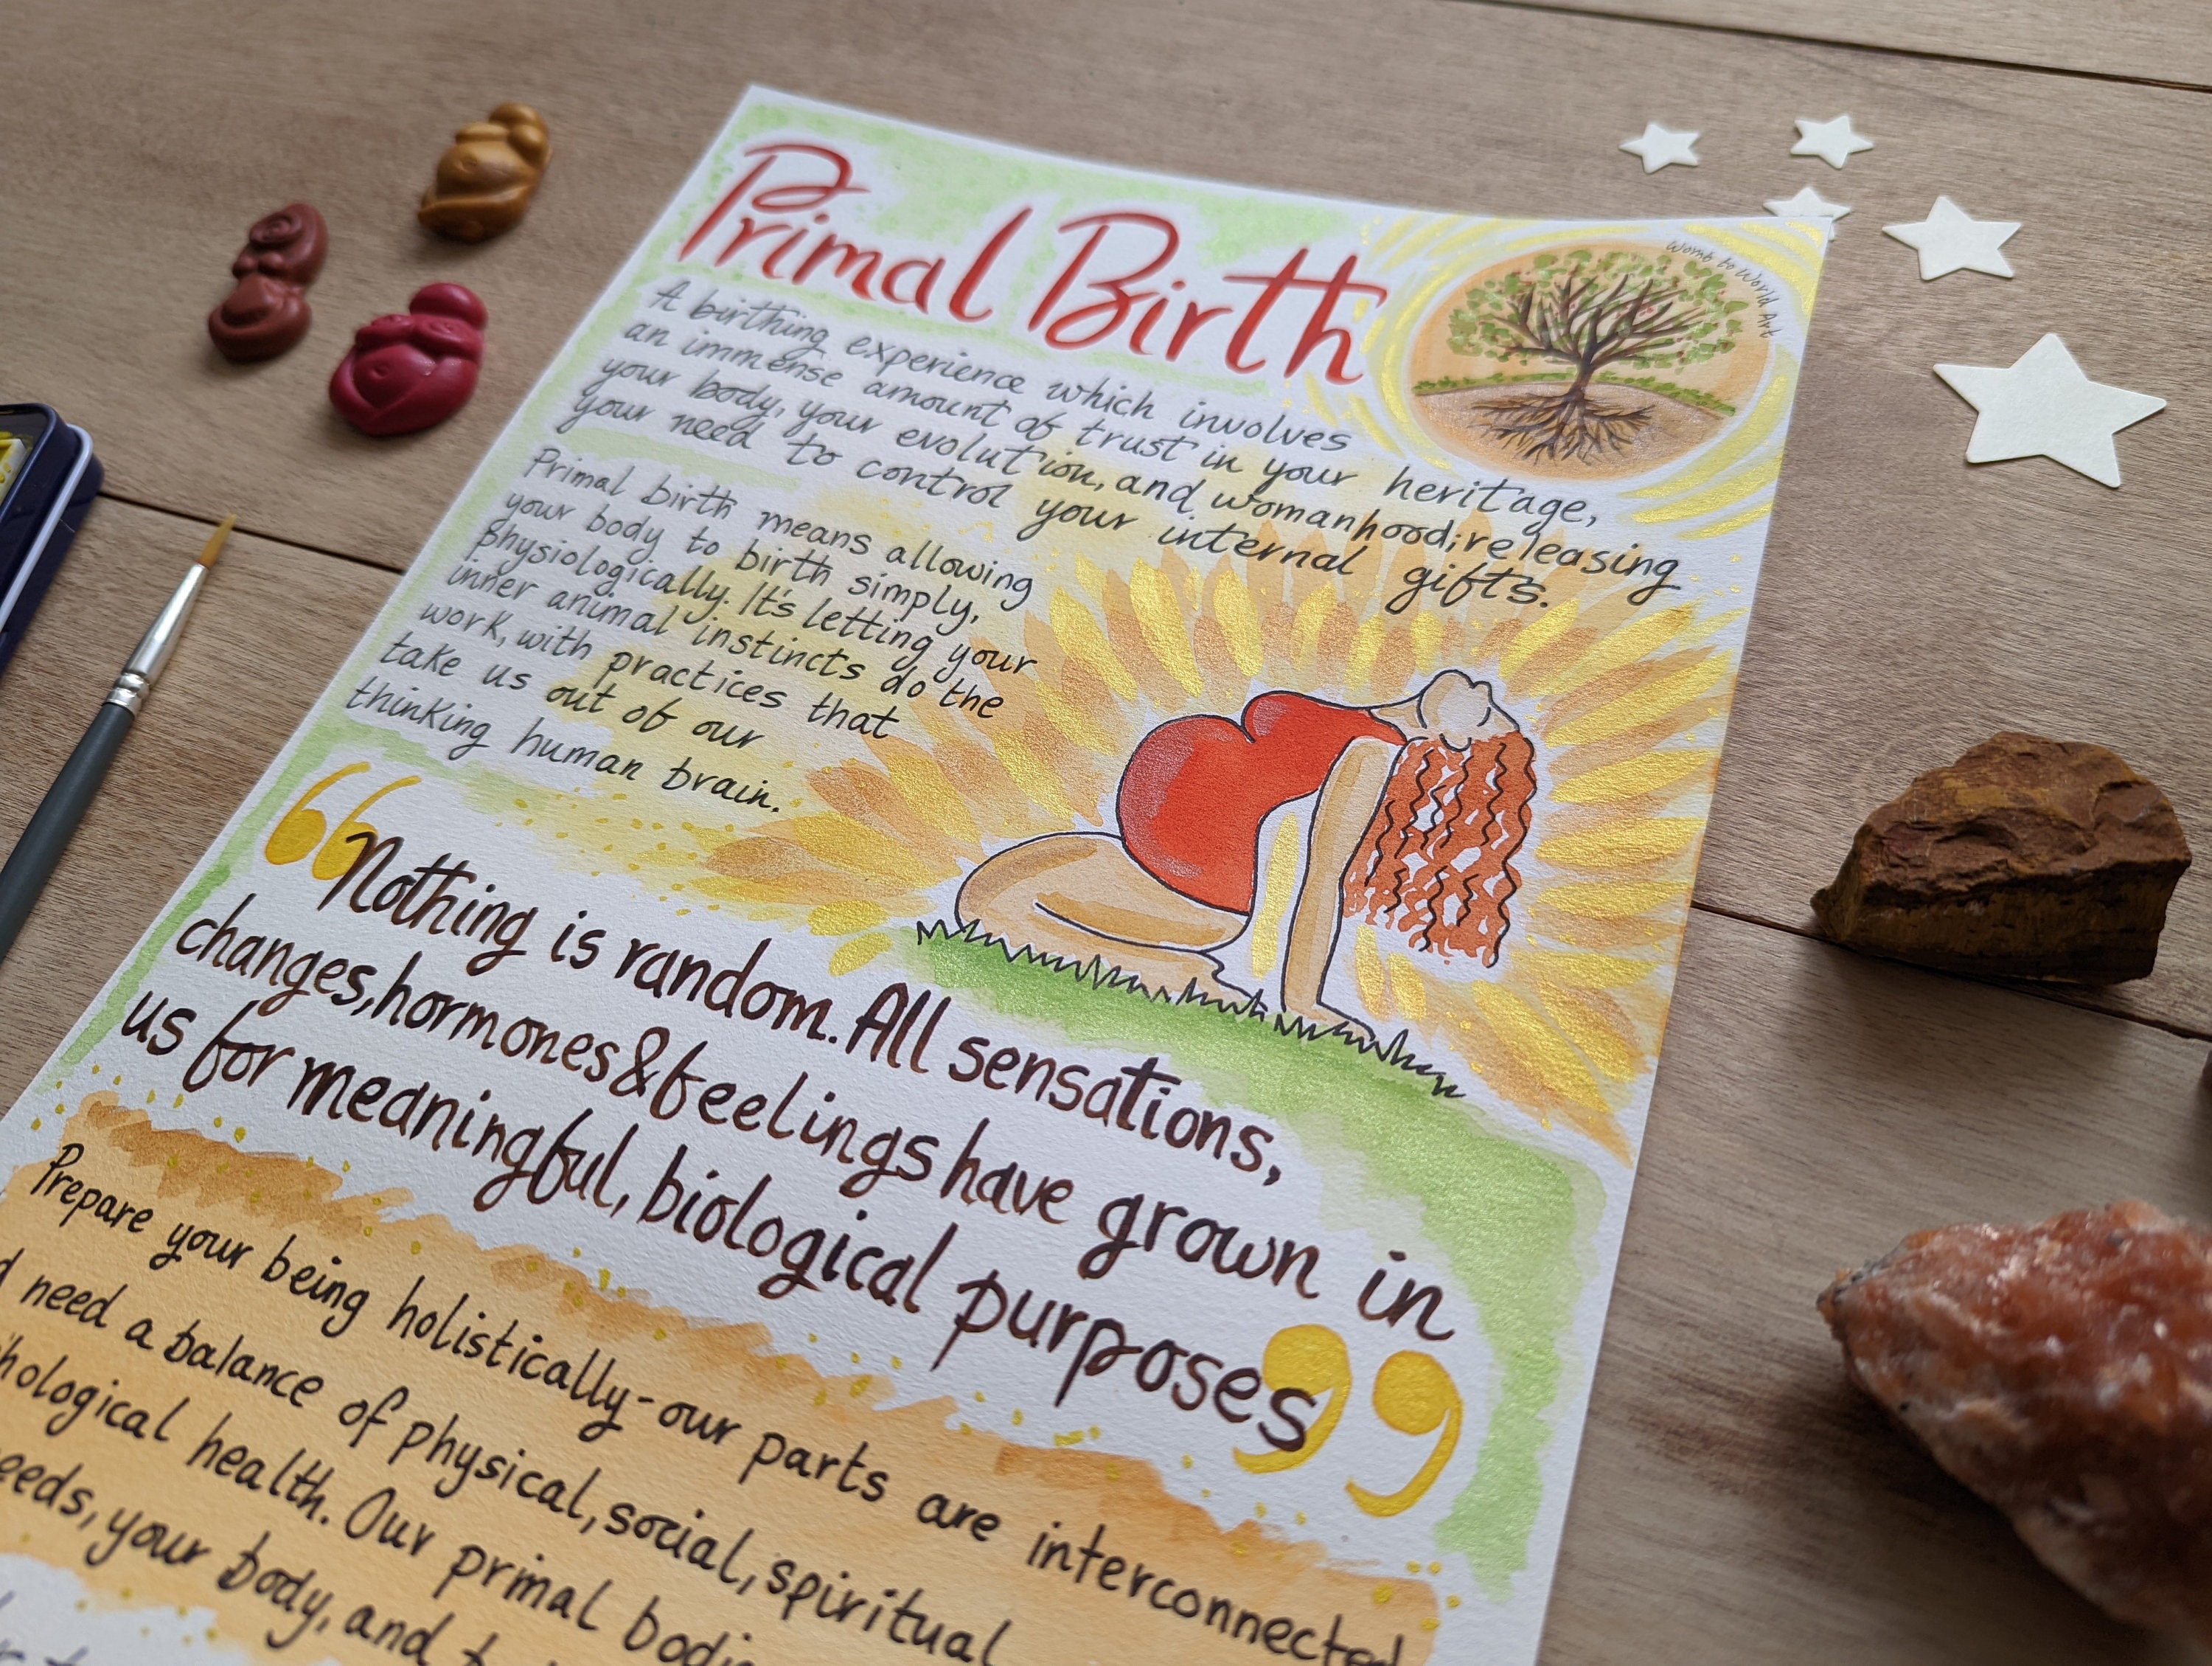 Primal Birth
Womb to World Art
A birthing experience which involves
an immense amount of trust in your heritage,
your body, your evolution, and womanhood; releasing
your need to control your internal gifts.
Primal birth means allowing
your body to birth simply,
physiologically. It's letting your
inner animal instincts do the
work, with practices that
take us out of our
thinking human brain.
“Nothing is random. All sensations,
changes, hormones & feelings have grown in
us for meaningful, biological purposes”
Prepare your being holistically - our parts are interconnected
need a balance of physical, social, spiritual
health. Our primal
your body, and